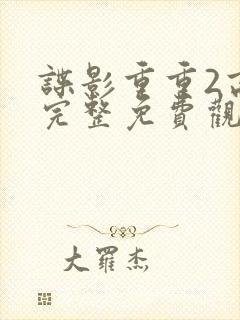 諜影重重2高
完整免費觀
大羅杰